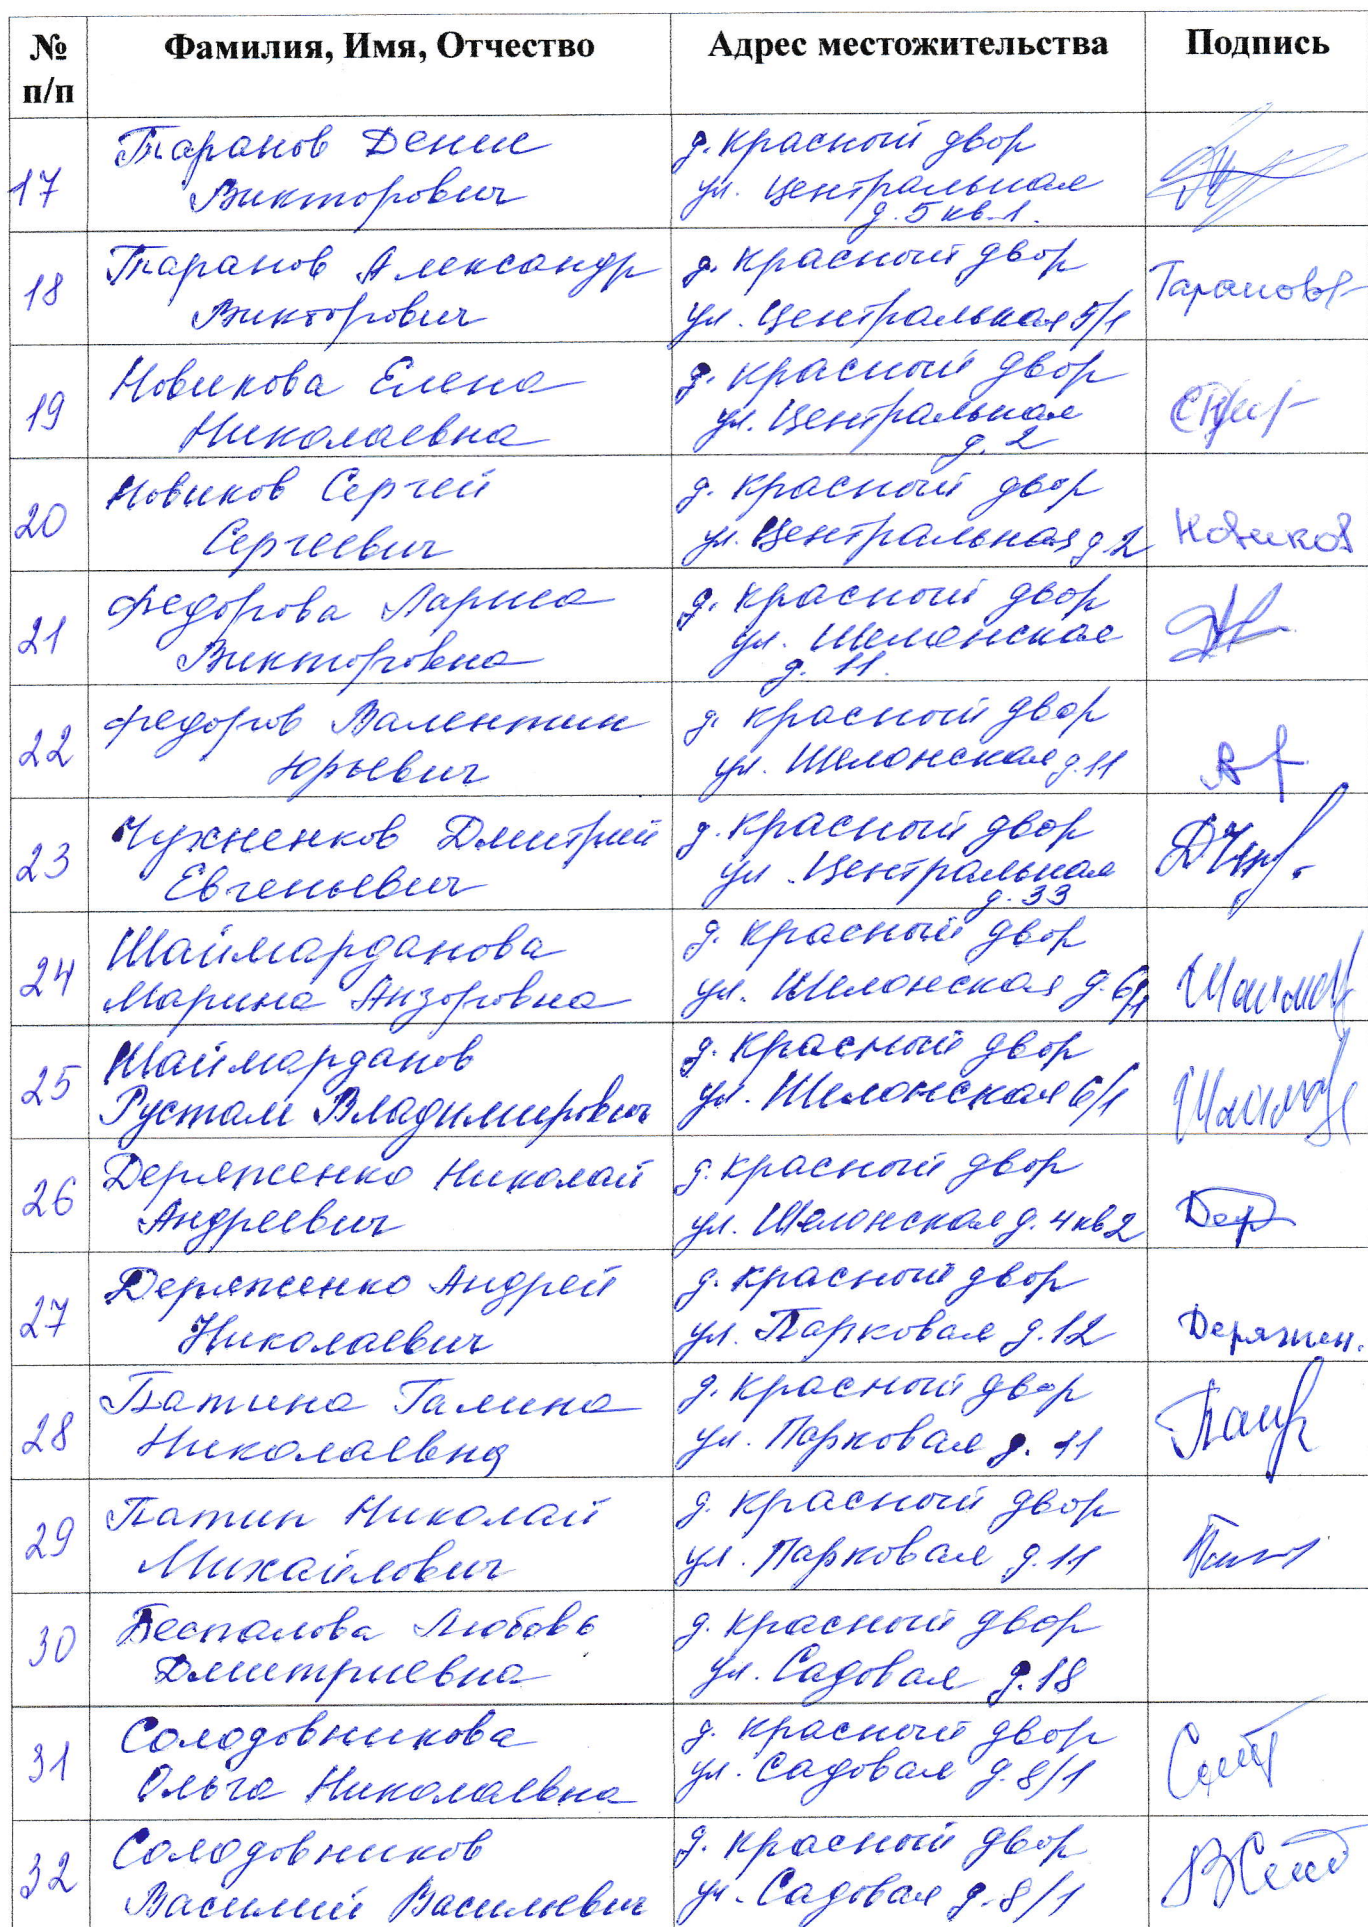 № п/п Фамилия, Имя, Отчество Адрес местожительства Подпись
17 Таранов Денис Викторович д. Красный двор ул. Центральная д. 5 кв. 1.
18 Таранов Александр Викторович д. Красный двор ул. Центральная 5/1 Таранов
19 Новикова Елена Николаевна д. Красный двор ул. Центральная д. 2
20 Новиков Сергей Сергеевич д. Красный двор ул. Центральная д 2 Новиков
21 Федорова Лариса Викторовна д. Красный двор ул. Шелонская д. 11.
22 Федоров Валентин Юрьевич д. Красный двор ул. Шелонская д. 11
23 Чухненков Дмитрий Евгеньевич д. Красный двор ул. Центральная д. 33
24 Шаймарданова Марина Анзоровна д. Красный двор ул. Шелонская д. 6/1
25 Шаймарданов Рустам Владимирович д. Красный двор ул. Шелонская 6/1
26 Деряженко Николай Андреевич д. Красный двор ул. Шелонская д. 4 кв 2 Дер
27 Деряженко Андрей Николаевич д. Красный двор ул. Парковая д. 12 Деряжен.
28 Патина Галина Николаевна д. Красный двор ул. Парковая д. 11
29 Патин Николай Михайлович д. Красный двор ул. Парковая д. 11
30 Беспалова Любовь Дмитриевна д. Красный двор ул. Садовая д. 18
31 Солодовникова Ольга Николаевна д. Красный двор ул. Садовая д. 8/1
32 Солодовников Василий Васильевич д. Красный двор ул. Садовая д. 8/1